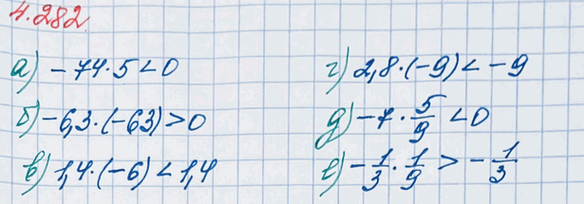 4.282
а) -74·5<0
б) -6,3·(-63)>0
в) 1,4·(-6)<1,4
г) 2,8·(-9)<-9
д) -7·5/9<0
е) -1/3·1/9>-1/3